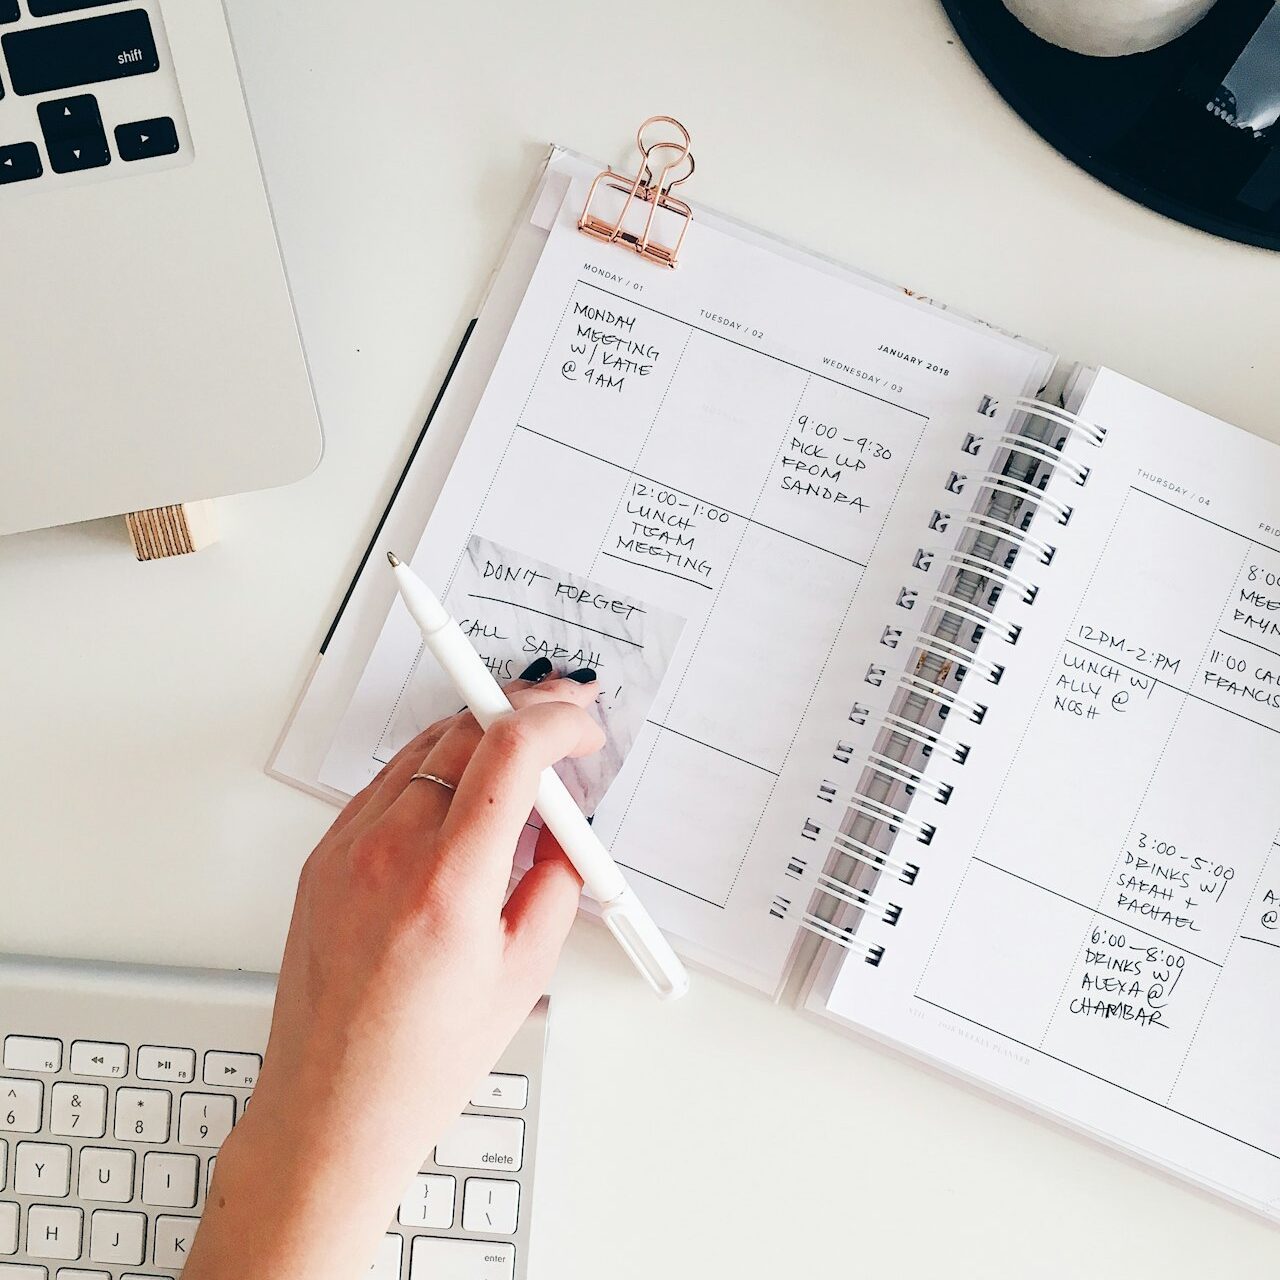 shift
MONDAY / 01
MONDAY
MEETING
W/ KATIE
@ 9AM
TUESDAY / 02
12:00-1:00
LUNCH
TEAM
MEETING
JANUARY 2018
WEDNESDAY / 03
9:00-9:30
PICK UP
FROM
SANDRA
DON'T FORGET
CALL SARAH
THIS
!
THURSDAY / 04
12PM-2:PM
LUNCH W/
ALLY @
NOSH
8:0
11:00
3:00-5:00
DRINKS W/
SARAH +
RACHAEL
6:00-8:00
DRINKS W/
ALEXA @
CHAMBAR
@
F6
F7
F8
F9
^
6
&
7
*
8
(
9
Y
U
I
H
J
K
delete
}
]
|
\
enter